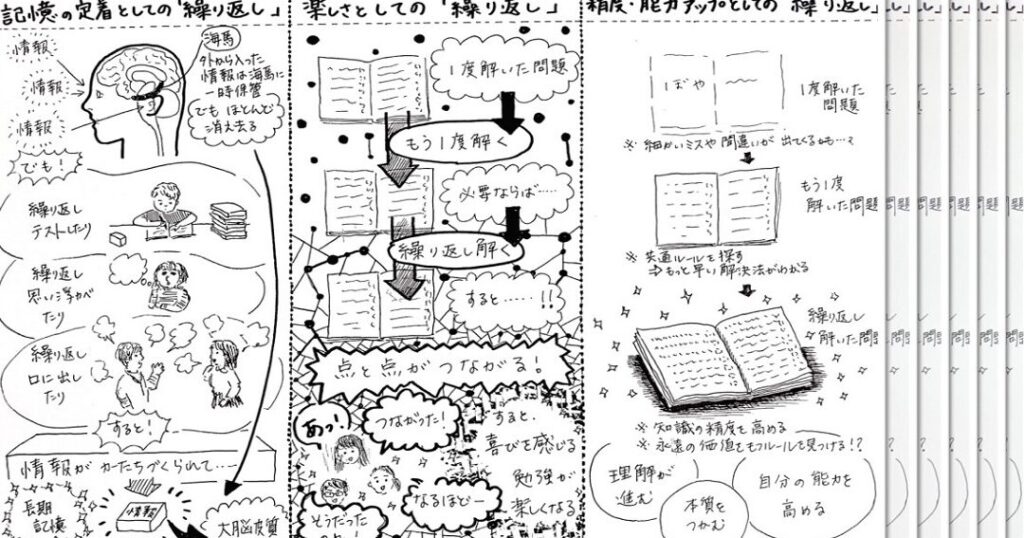 記憶の定着としての「繰り返し」
情報
情報
情報
海馬
外から入った
情報は海馬に
一時保管
でもほとんど
消え去る
でも！
繰り返し
テストしたり
繰り返し
思い浮かべ
たり
繰り返し
口に出し
たり
すると！
情報がかたちづくられて…
長期
記憶
情報
大脳皮質
楽しさとしての「繰り返し」
1度解いた問題
もう1度解く
必要ならば……
繰り返し解く
すると……!!
点と点がつながる！
あっ！
つながった！
なるほどー
そうだった
すると、
喜びを感じる
勉強が
楽しくなる
精度・能力アップとしての「繰り返し」
ぼや
1度解いた
問題
※ 細かいミスや間違いが出てくるかも…?
もう1度
解いた問題
※ 共通ルールを探す
⇒もっと早い解決法がわかる
繰り返し
解いた問題
※ 知識の精度を高める
※ 永遠の価値をもつルールを見つける!?
理解が
進む
本質を
つかむ
自分の能力を
高める